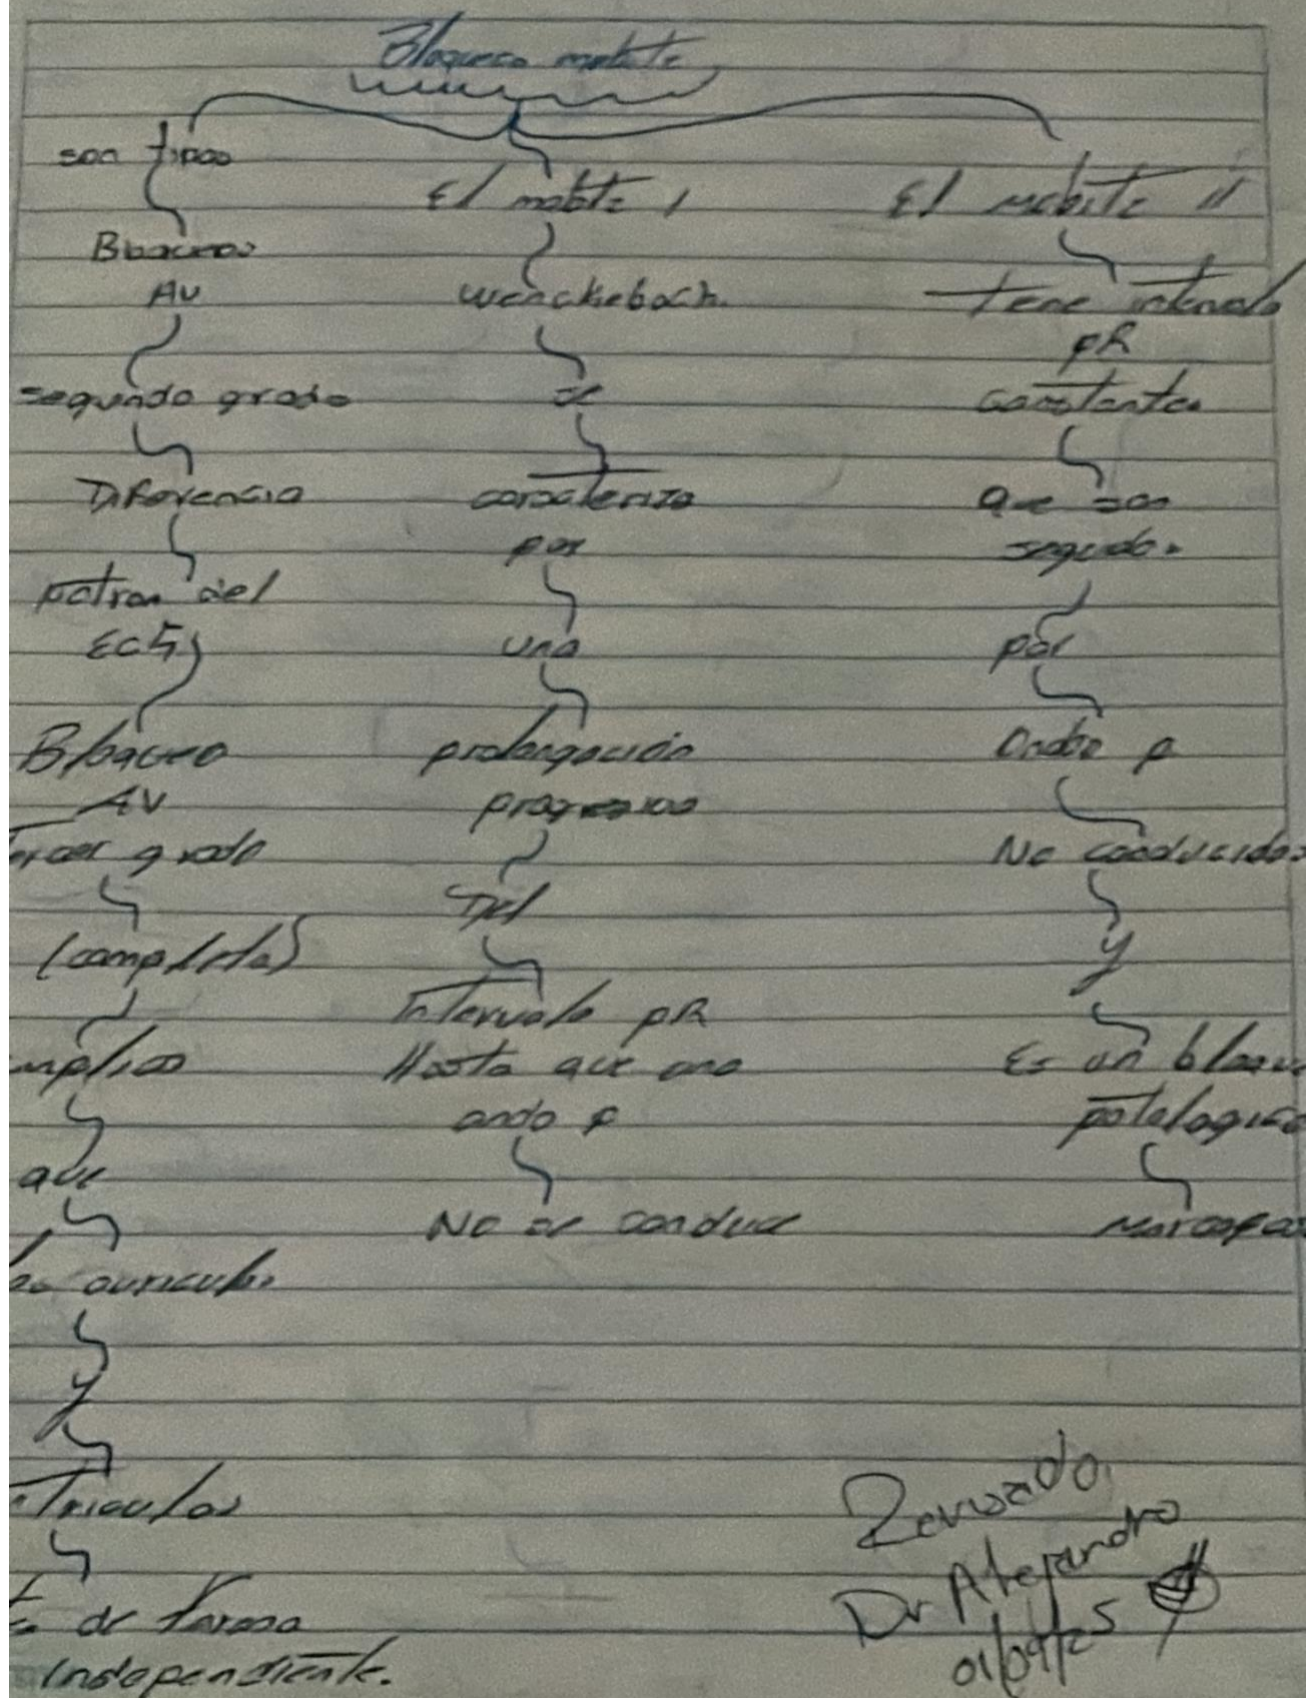 Bloqueo mobitz
son tipos
Bloqueos
AV
segundo grado
Diferencia
patron del
ECG
Bloqueo
AV
Tercer grado
(completo)
implica
que
aurículas
y
ventriculos
de forma
independiente.
El mobitz 1
Wenckebach.
se
caracteriza
por
una
prolongación
progresiva
Del
Intervalo PR
Hasta que una
onda P
No se conduce
El mobitz II
tiene intervalo
PR
constantes
que son
seguidos
por
Ondas P
No conducidas
y
Es un bloqueo
patologico
marcapaso
Revisado.
Dr Alejandro
01/09/25